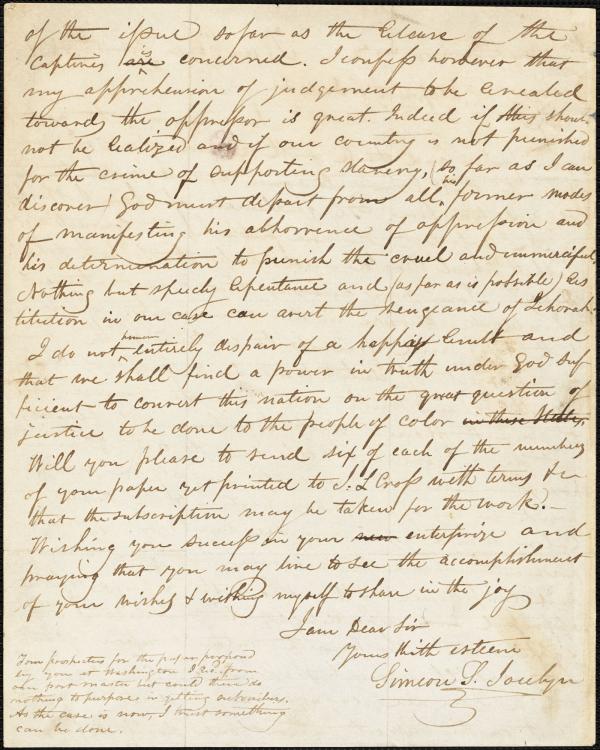 of the issue so far as the release of the
captives is are concerned. I confess however that
my apprehension of judgement to be revealed
towards the oppressor is great. Indeed if this should
not be realized and if our country is not punished
for the crime of supporting slavery, (so far as I can
discover) God must depart from all his former modes
of manifesting his abhorrence of oppression and
his determination to punish the cruel and unmerciful.
Nothing but speedy repentance and (as far as is possible) res
titution in our case can avert the vengeance of Jehovah.
I do not however entirely despair of a happy result and
that we shall find a power in truth under God suf
ficient to convert this nation on the great question of
justice to be done to the people of color in these States.
Will you please to send six of each of the numbers
of your paper yet printed to J. L Cross with terms &c
that the subscription may be taken for the work.—
Wishing you success in your new enterprize and
praying that you may live to see the accomplishment
of your wishes & wishing myself to share in the joy
I am Dear Sir
Yours with esteem
Simeon S. Jocelyn
Your prospectus for the paper proposed
by you at Washington I rec'd from
our post master but could then do
nothing to purpose in getting subscribers.
As the case is now, I trust something
can be done.